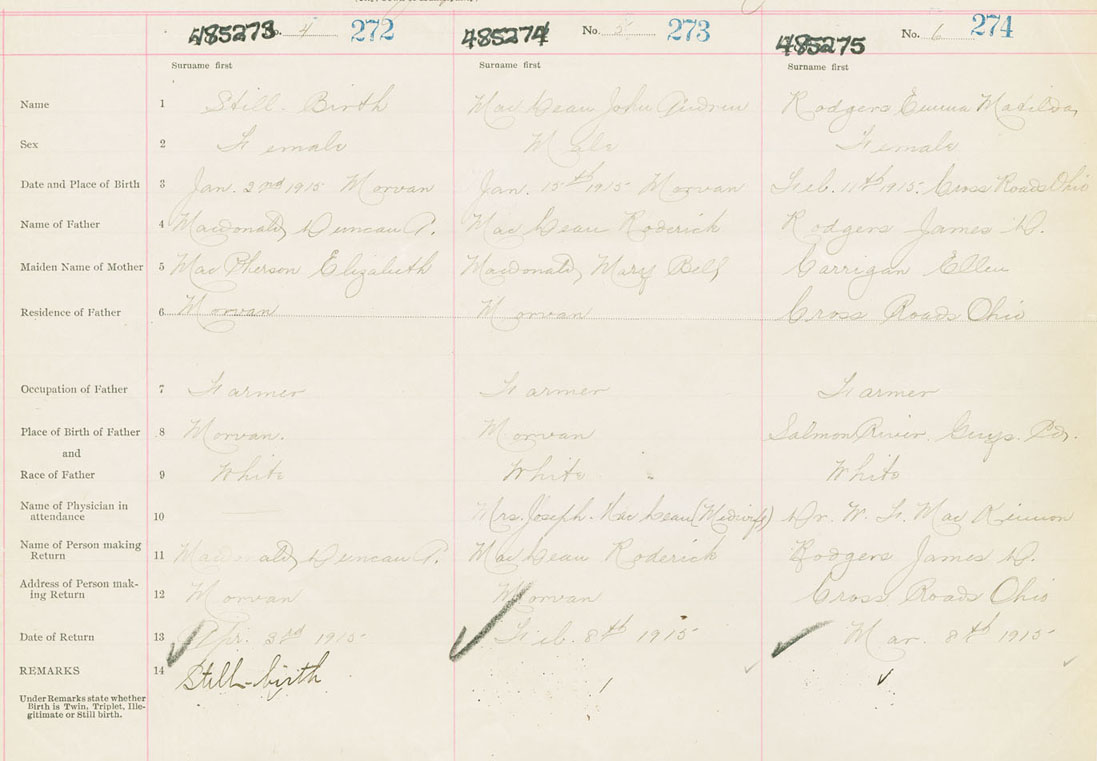 485273 No. 4 272 485274 No. 5 273 485275 No. 6 274
Surname first Surname first Surname first
Name 1 Still-Birth MacLean John Andrew Rodgers Emma Matilda
Sex 2 Female Male Female
Date and Place of Birth 3 Jan. 2nd 1915 Morvan Jan. 15th 1915 Morvan Feb. 11th 1915. Cross Roads Ohio
Name of Father 4 Macdonald, Duncan P. MacLean Roderick Rodgers James D.
Maiden Name of Mother 5 MacPherson Elizabeth Macdonald, Mary Bell Carrigan Ellen
Residence of Father 6 Morvan Morvan Cross Roads Ohio
Occupation of Father 7 Farmer Farmer Farmer
Place of Birth of Father 8 Morvan. Morvan Salmon River. Guys. Co.
and
Race of Father 9 White White White
Name of Physician in
attendance 10 Mrs. Joseph MacLean (Midwife) Dr. W. F. MacKinnon
Name of Person making
Return 11 Macdonald, Duncan P. MacLean Roderick Rodgers James D.
Address of Person mak-
ing Return 12 Morvan Morvan Cross Roads Ohio
Date of Return 13 Apr. 3rd 1915 Feb. 8th 1915 Mar. 8th 1915
REMARKS 14 Still-birth
Under Remarks state whether
Birth is Twin, Triplet, Ille-
gitimate or Still birth.